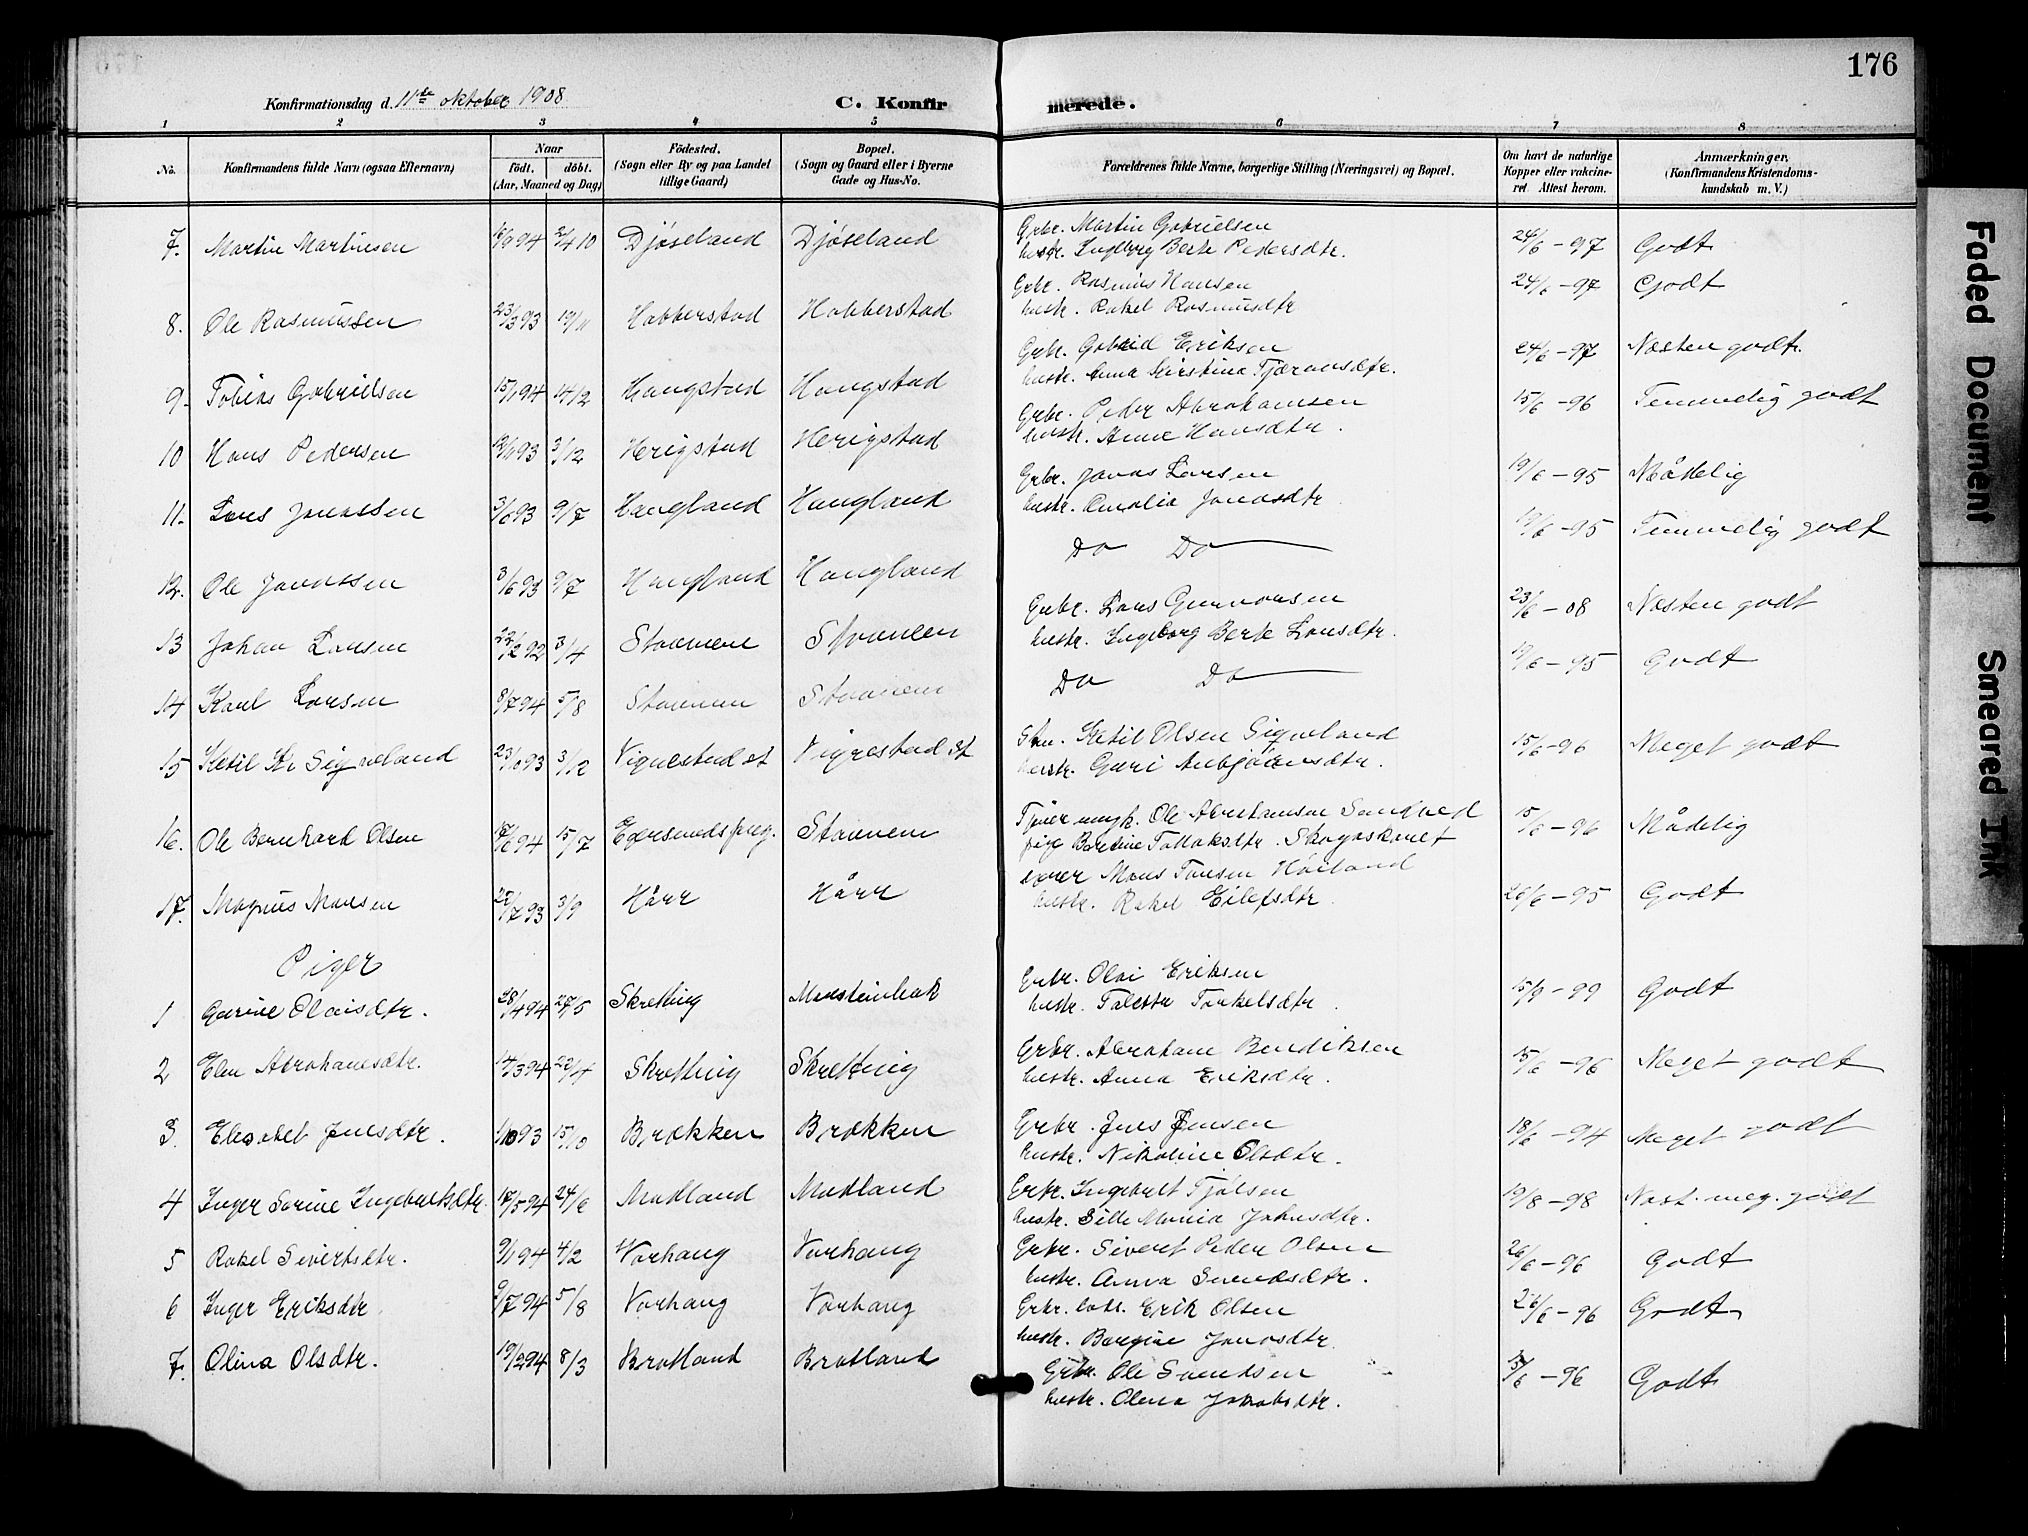 176
Konfirmationsdag d. 11te oktober 1908
C. Konfirmerede.
1 2 3 4 5 6 7 8
No. Konfirmandens fulde Navn (ogsaa Efternavn) Naar født. døbt. (Aar, Maaned og Dag) Fødested. (Sogn eller By og paa Landet tillige Gaard) Bopæl. (Sogn og Gaard eller i Byerne Gade og Hus-No. Forældrenes fulde Navne, borgerlige Stilling (Næringsvei) og Bopæl. Om havt de naturlige Kopper eller vakcineret Attest herom. Anmærkninger. (Konfirmandens Kristendomskundskab m. V.)
7. Martin Martinsen 94 Djøseland Djøseland Grbr. Martin Gabrielsen 24/6 - 97 Godt
hustr. Ingeborg Berte Pedersdtr.
8. Ole Rasmussen 23/3 93 19/11 Hobberstad Hobberstad Grbr. Rasmus Hansen 24/6 - 97 Godt
hustr. Rakel Rasmusdtr
9. Tobias Gabrielsen 15/1 94 14/12 Haugstad Haugstad Grbr. Gabriel Eriksen 24/6 - 97 Næsten godt.
hustr. Anna Kirstina Tjæransdtr.
10 Hans Pedersen 93 3/12 Herigstad Herigstad Grbr. Peder Abrahamsen 15/6 - 96 Temmelig godt
hustr. Anne Hansdtr.
11. Lars Jonassen 3/6 93 9/7 Haugland Haugland Grbr. Jonas Larsen 19/6 - 95 Mådelig
hustr. Amalia Jonasdtr
12. Ole Jonassen 3/6 93 9/7 Haugland Haugland Do Do 19/6 - 95 Temmelig godt
13 Johan Larsen 22/2 92 3/4 Stavnem Stavnem Grbr. Lars Gunvorsen 23/6 - 08 Næsten godt
hustr. Ingeborg Berte Larsdtr.
14 Karl Larsen 8/7 94 5/8 Stavnem Stavnem Do Do 19/6 - 95 Godt
15 Ketil K. Sigveland 23/10 93 3/12 Vigrestad st Vigrestad st Ketil Olsen Sigveland 15/6 - 96 Meget godt
hustr. Guri Anbjørnsdtr.
16. Ole Bernhard Olsen 17/6 94 15/7 Egersunds præg. Stavnem Tjener ungk. Ole Abrahamsen Sandved 15/6 - 96 Mådelig
pige Bertine Tollaksdtr. Skogaskaret
17. Magnus Monsen 22/7 93 3/9 Hårr Hårr Mons Tonsen Høiland 26/6 - 95 Godt
hustr. Rakel Eilefsdtr.
Piger
1 Gurine Olaisdtr. 28/4 94 27/5 Skretting Grbr. Olai Eriksen 15/9 - 99 Godt
hustr. Taletta Torkelsdtr.
2 Elen Abrahamsdtr. 14/3 94 22/4 Skretting Skretting Grbr. Abraham Bendiksen 15/6 - 96 Meget godt
hustr. Anna Eriksdtr.
3. Elisabet Jensdtr. 1/10 93 15/10 Brækken Brækken Grbr. Jens Jensen 18/6 - 94 Meget godt
hustr. Nikoline Olsdtr.
4 Inger Sorine Ingebretsdtr. 17/5 94 24/6 Madland Madland Grbr. Ingebret Tjølsen 19/8 - 98 Næst. meg. godt
hustr. Sille Maria Johnsdtr.
5 Rakel Sivertsdtr. 9/1 94 4/2 Varhaug Varhaug Grbr. Siveret Peder Olsen 26/6 - 96 Godt
hustr. Anna Svendsdtr.
6 Inger Eriksdtr. 9/7 94 5/8 Varhaug Varhaug Grbr. Erik Olsen 26/6 - 96 Godt
hustr. Bergine Jonasdtr.
7. Olina Olsdtr. 19/2 94 8/3 Bratland Bratland Grbr. Ole Svendsen 15/6 - 96 Godt
hustr. Olena Jakobsdtr.
Faded Document
Smeared Ink